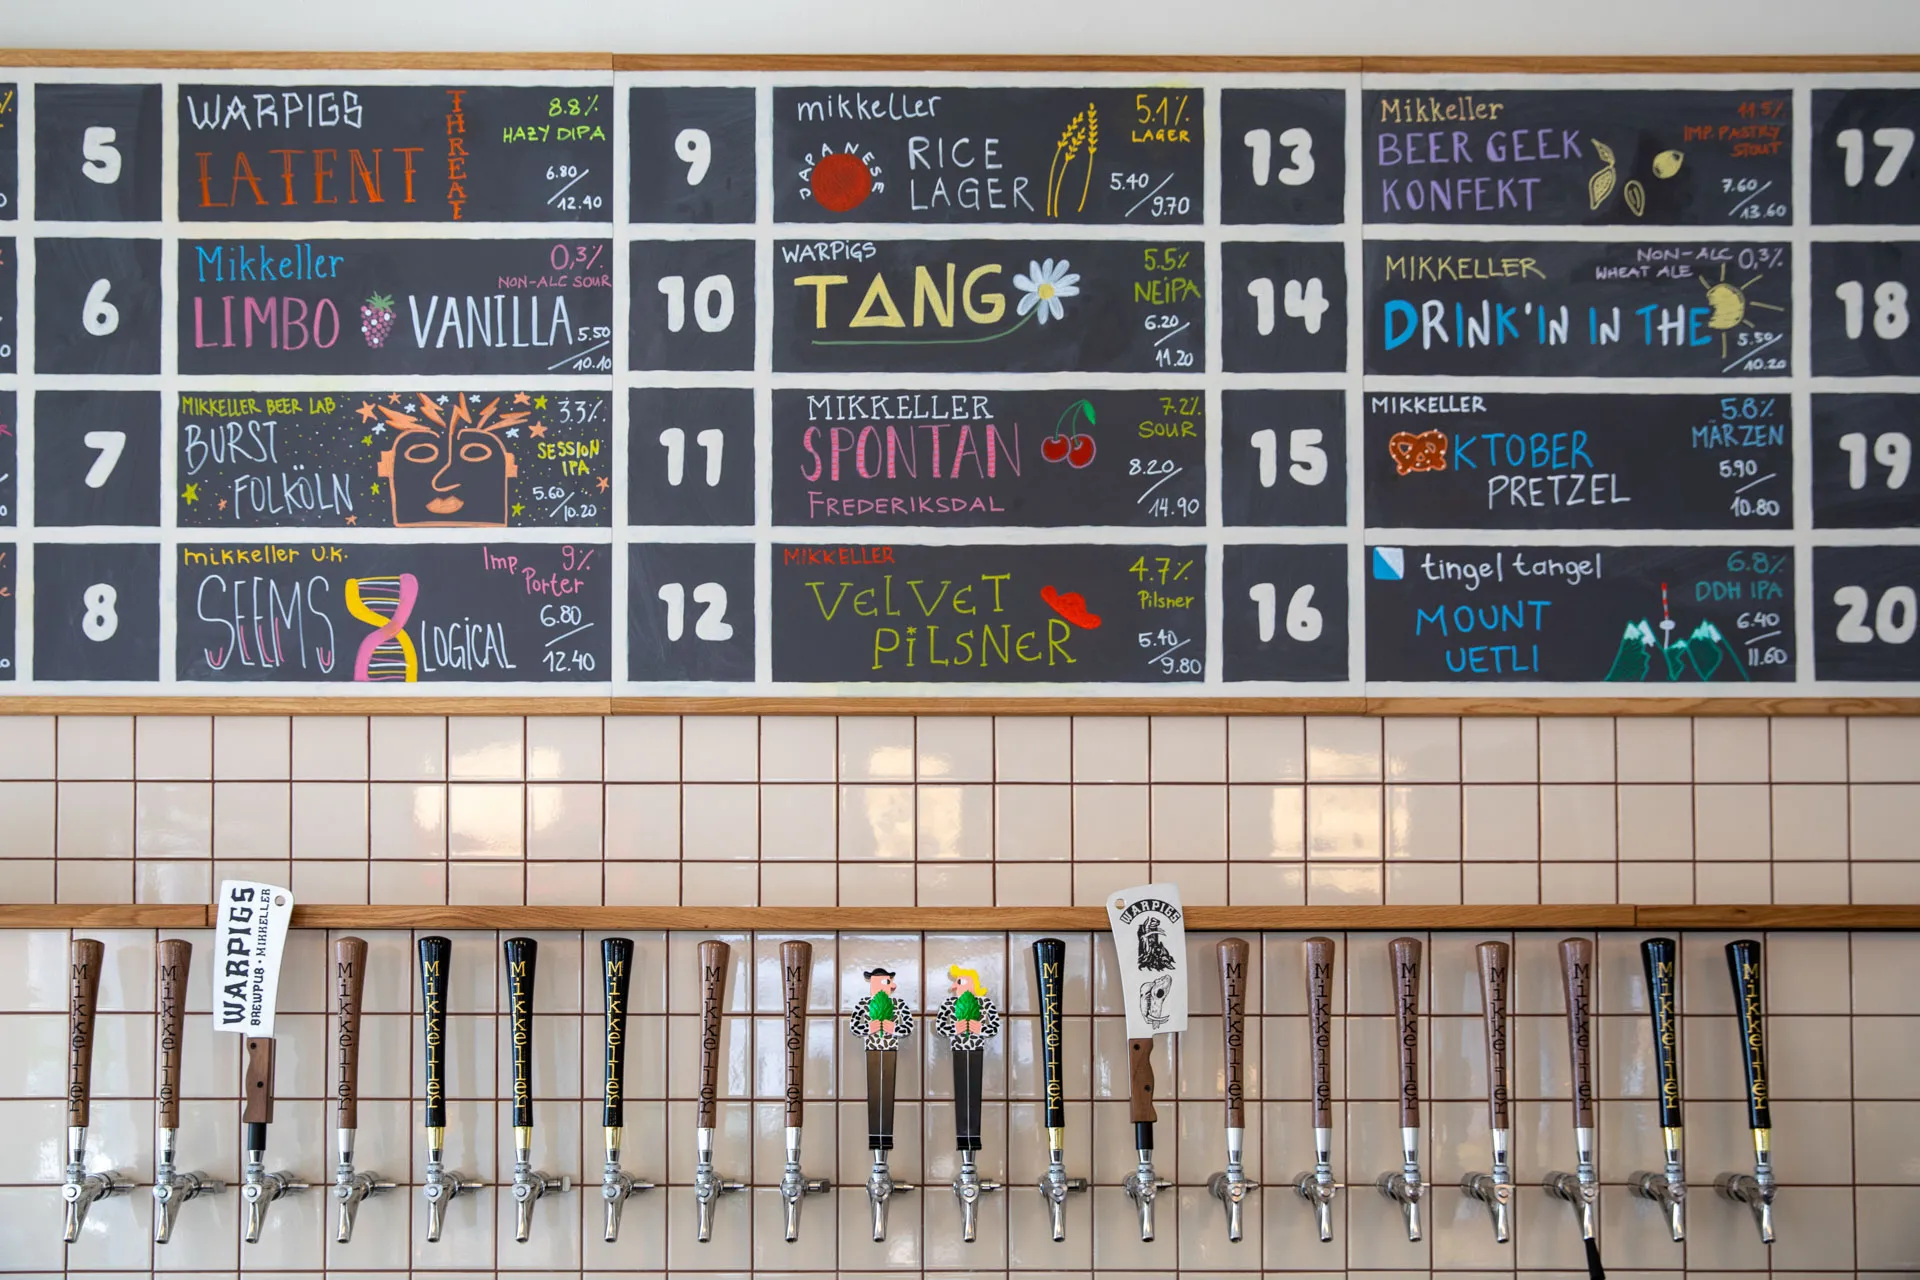 5
WARPIGS
LATENT
THREAT
8.8%
HAZY DIPA
6.80/12.40
6
Mikkeller
LIMBO VANILLA
0,3%
NON-ALC SOUR
5.50/10.10
7
MIKKELLER BEER LAB
BURST
FOLKÖLN
3.3%
SESSION
IPA
5.60/10.20
8
mikkeller U.K.
SEEMS LOGICAL
9%
Imp.
Porter
6.80/12.40
9
mikkeller
JAPANESE
RICE
LAGER
5.1%
LAGER
5.40/9.70
10
WARPIGS
TANG
5.5%
NEIPA
6.20/11.20
11
MIKKELLER
SPONTAN
FREDERIKSDAL
7.2%
SOUR
8.20/14.90
12
MIKKELLER
VELVET
PILSNER
4.7%
Pilsner
5.40/9.80
13
Mikkeller
BEER GEEK
KONFEKT
11.5%
IMP. PASTRY
STOUT
7.60/13.60
14
MIKKELLER
DRINK'IN IN THE
NON-ALC 0,3%
WHEAT ALE
5.50/10.20
15
MIKKELLER
KTOBER
PRETZEL
5.8%
MÄRZEN
5.90/10.80
16
tingel tangel
MOUNT
UETLI
6.8%
DDH IPA
6.40/11.60
17
18
19
20
Mikkeller
Mikkeller
WARPIGS
BREWPUB · MIKKELLER
Mikkeller
Mikkeller
Mikkeller
Mikkeller
Mikkeller
Mikkeller
Mikkeller
WARPIGS
Mikkeller
Mikkeller
Mikkeller
Mikkeller
Mikkeller
Mikkeller
Mikkeller